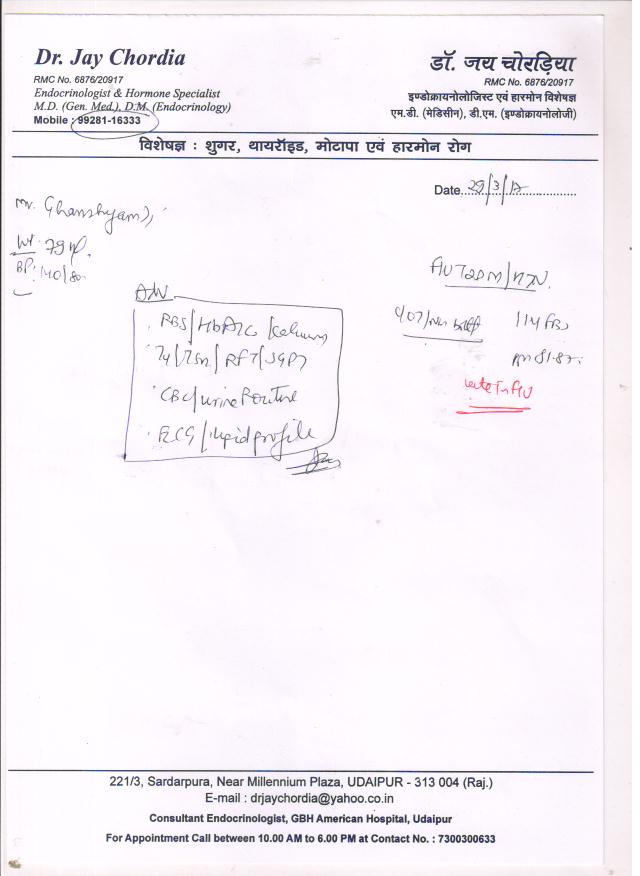 Dr. Jay Chordia
RMC No. 6876/20917
Endocrinologist & Hormone Specialist
M.D. (Gen. Med.), D.M. (Endocrinology)
Mobile : 99281-16333
डॉ. जय चोरड़िया
RMC No. 6876/20917
इण्डोक्रायनोलोजिस्ट एवं हारमोन विशेषज्ञ
एम.डी. (मेडिसीन), डी.एम. (इण्डोक्रायनोलोजी)
विशेषज्ञ : शुगर, थायरॉइड, मोटापा एवं हारमोन रोग
Date 29/3/17
Mr. Ghanshyam
Wt. 79
BP. 140/80
T2DM/HTN
114 FBS
RBS/HbA1c/Calcium
T4/TSH/RFT/SGPT
CBC/urine Routine
ECG/lipid profile
221/3, Sardarpura, Near Millennium Plaza, UDAIPUR - 313 004 (Raj.)
E-mail : drjaychordia@yahoo.co.in
Consultant Endocrinologist, GBH American Hospital, Udaipur
For Appointment Call between 10.00 AM to 6.00 PM at Contact No. : 7300300633